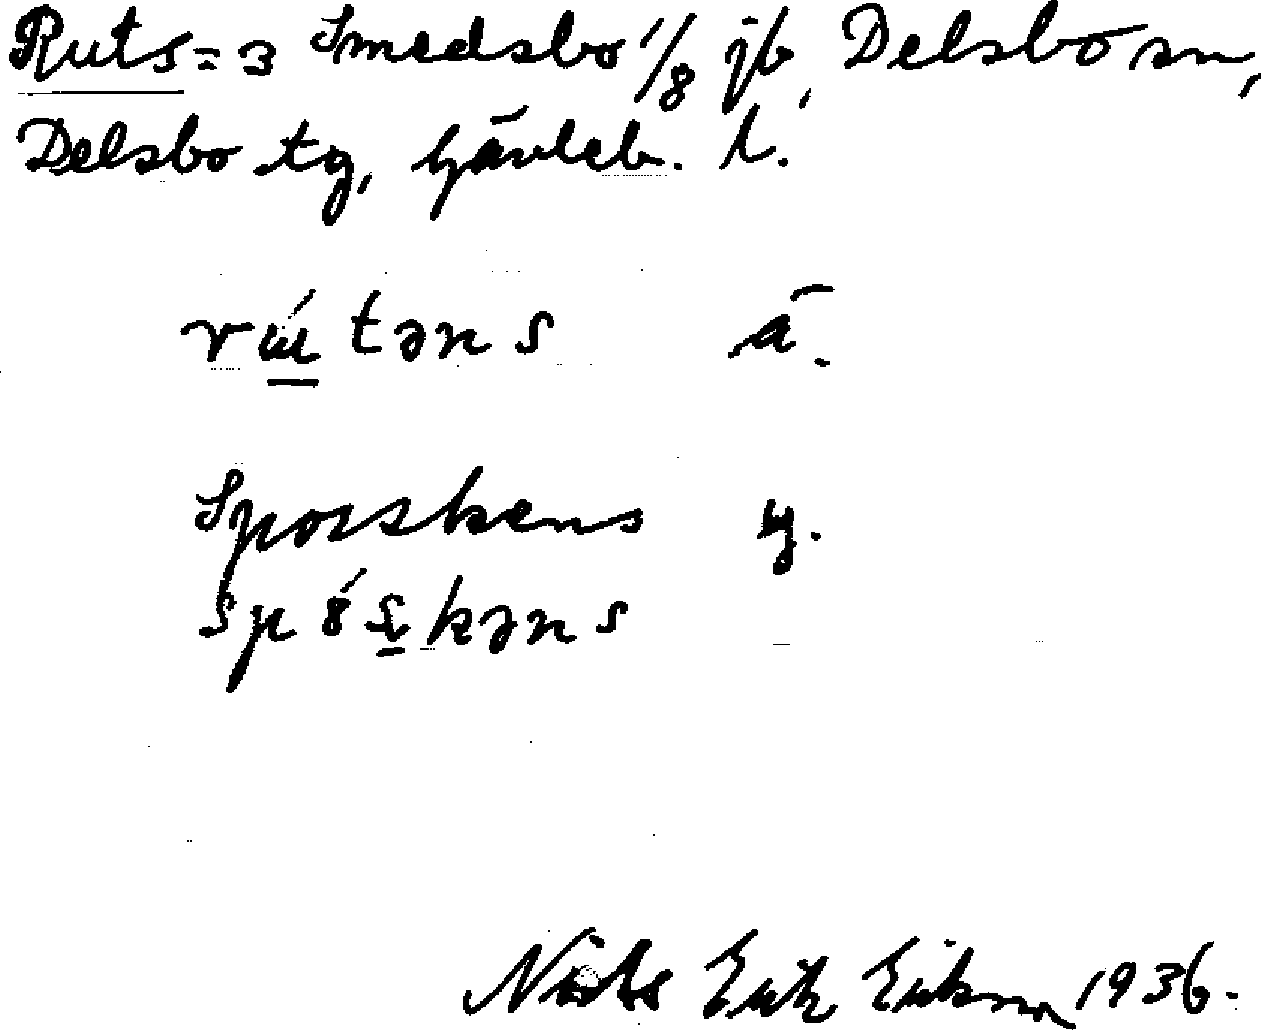 Ruts = 3 Smedsbo 1/8 jb, Delsbo sn,
Delsbo tg, Gävleb. l.
təns ä.
Sporskens y.
Erik Erikson 1936.